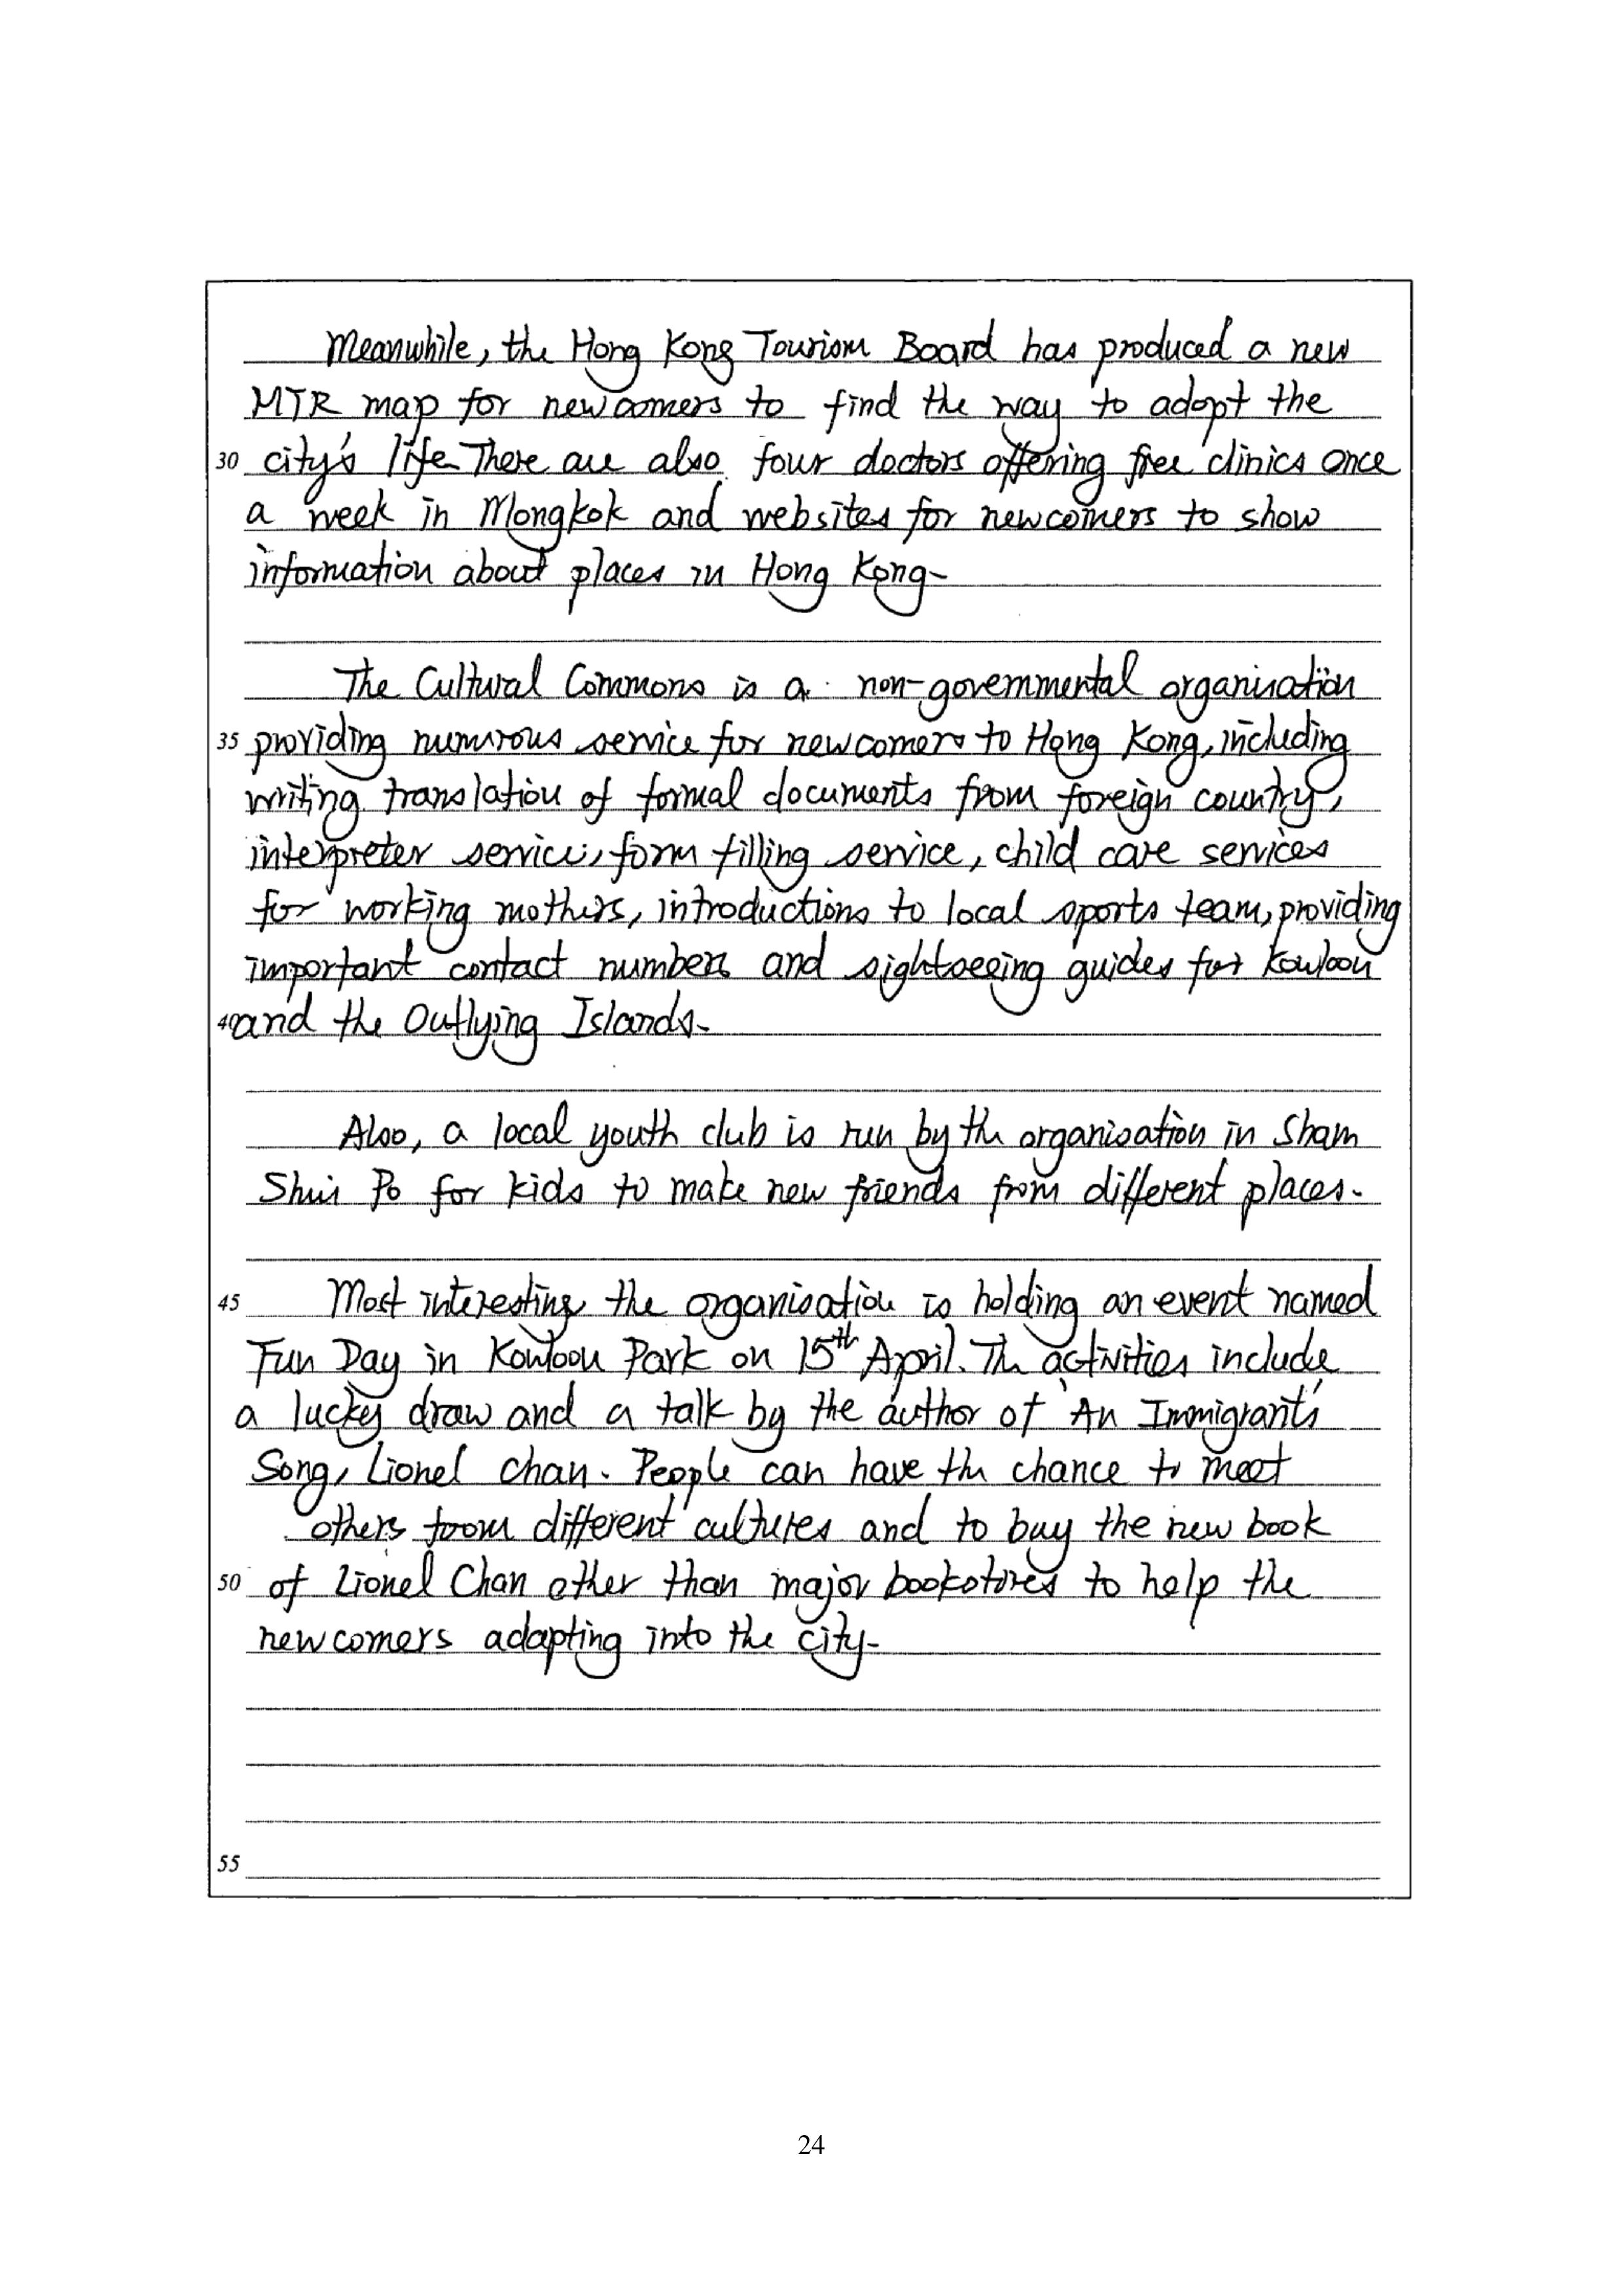 Meanwhile, the Hong Kong Tourism Board has produced a new
MTR map for newcomers to find the way to adopt the
30 city's life. There are also four doctors offering free clinics once
a week in Mongkok and websites for newcomers to show
information about places in Hong Kong.
The Cultural Commons is a non-governmental organisation
35 providing numerous service for newcomers to Hong Kong, including
writing translation of formal documents from foreign country,
interpreter service, form filling service, child care services
for working mothers, introductions to local sports team, providing
important contact numbers and sightseeing guides for Kowloon
40 and the Outlying Islands.
Also, a local youth club is run by the organisation in Sham
Shui Po for kids to make new friends from different places.
45 Most interesting, the organisation is holding an event named
Fun Day in Kowloon Park on 15th April. The activities include
a lucky draw and a talk by the author of 'An Immigrant's'
Song, Lionel Chan. People can have the chance to meet
others from different cultures and to buy the new book
50 of Lionel Chan other than major bookstores to help the
newcomers adapting into the city.
55
24